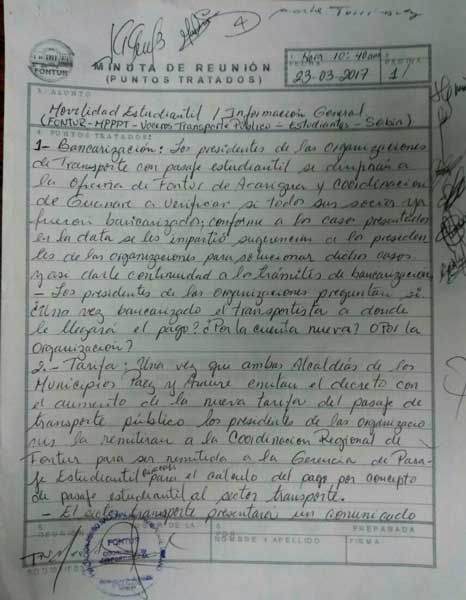 FONTUR
MINUTA DE REUNIÓN
(PUNTOS TRATADOS)
Hora 10:40am
23-03-2017
PÁGINA
1/
3. ASUNTO
Movilidad Estudiantil / Información General
(FONTUR-MPPPT-Voceros Transporte Público - estudiantes - Sobin)
4. PUNTOS TRATADOS:
1- Bancarización: Los presidentes de las organizaciones
de Transporte con pasaje estudiantil se dirigirán a
la oficina de Fontur de Acarigua y Coordinación
de Guanare a verificar si todos sus socios ya
fueron bancarizados; conforme a los casos presentados
en la data se les impartió sugerencias a los presiden
tes de las organizaciones para solucionar dichos casos
y asi darle continuidad a los trámites de bancarización
- Los presidentes de las organizaciones preguntan si.
¿Una vez bancarizado el transportista a donde
le llegará el pago? ¿Por la cuenta nueva? O Por la
Organización?
2.- Tarifa: Una vez que ambas Alcaldías de los
Municipios Páez y Araure emitan el decreto con
el aumento de la nueva tarifa del pasaje de
transporte público los presidentes de las organizacio
nes la remitiran a la Coordinación Regional de
Fontur para ser remitida a la Gerencia de Pasa-
je Estudiantil para el calculo del pago por concepto
de pasaje estudiantil al sector transporte.
- El sector transporte presentará un comunicado
PREPARADA
NOMBRE Y APELLIDO
FIRMA
FONTUR